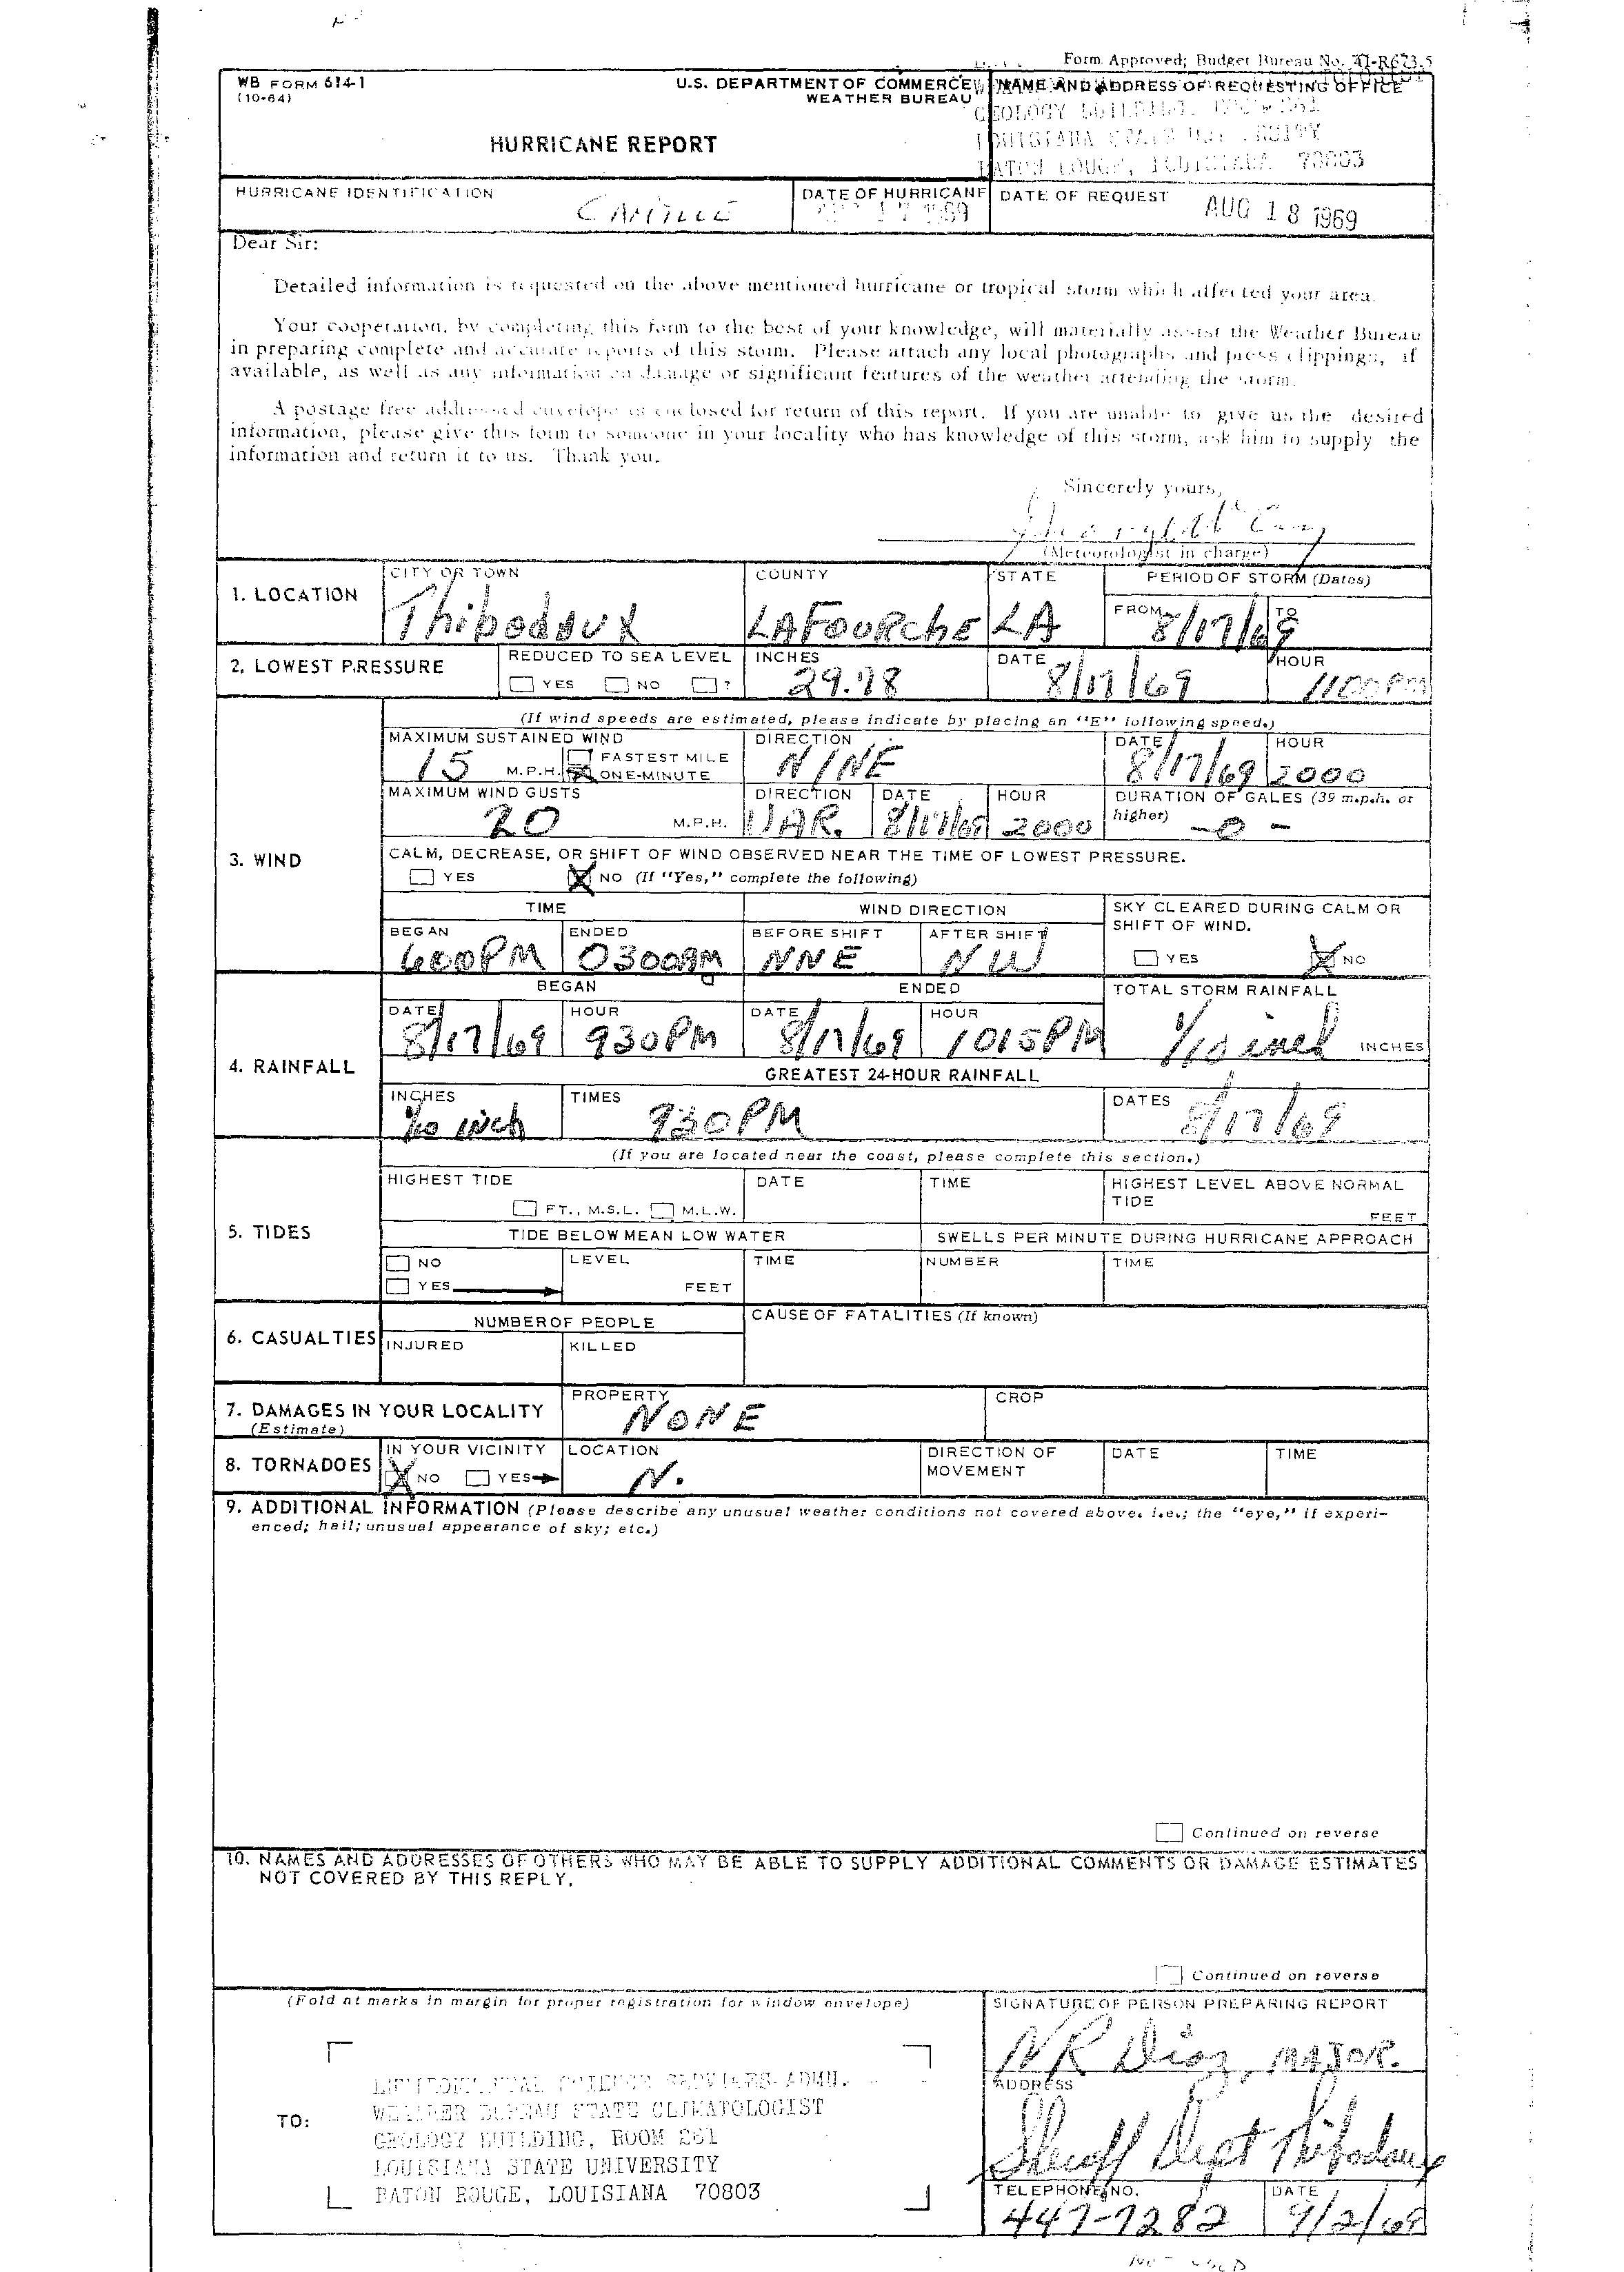 Form Approved; Budget Bureau No. 41-R673.5
WB FORM 614-1
(10-64)
U.S. DEPARTMENT OF COMMERCE
WEATHER BUREAU
NAME AND ADDRESS OF REQUESTING OFFICE
GEOLOGY BUILDING,
LOUISIANA STATE
BATON ROUGE, LOUISIANA 70803
HURRICANE REPORT
HURRICANE IDENTIFICATION
Camille
DATE OF HURRICANE
17 1969
DATE OF REQUEST
AUG 18 1969
Dear Sir:
Detailed information is requested on the above mentioned hurricane or tropical storm which affected your area.
Your cooperation, by completing this form to the best of your knowledge, will materially assist the Weather Bureau
in preparing complete and accurate reports of this storm. Please attach any local photographs and press clippings, if
available, as well as any information on damage or significant features of the weather attending the storm.
A postage free addressed envelope is enclosed for return of this report. If you are unable to give us the desired
information, please give this form to someone in your locality who has knowledge of this storm, ask him to supply the
information and return it to us. Thank you.
Sincerely yours,
(Meteorologist in charge)
1. LOCATION
CITY OR TOWN
Thibodaux
COUNTY
LAFOURCHE
STATE
LA
PERIOD OF STORM (Dates)
FROM TO
8/17/69
2. LOWEST PRESSURE
REDUCED TO SEA LEVEL
YES NO ?
INCHES
29.78
DATE
8/17/69
HOUR
1100 PM
(If wind speeds are estimated, please indicate by placing an "E" following speed.)
3. WIND
MAXIMUM SUSTAINED WIND
15 M.P.H.
FASTEST MILE
ONE-MINUTE
DIRECTION
N/NE
DATE
8/17/69
HOUR
2000
MAXIMUM WIND GUSTS
20 M.P.H.
DIRECTION
VAR.
DATE
8/17/69
HOUR
2000
DURATION OF GALES (39 m.p.h. or
higher)
-0-
CALM, DECREASE, OR SHIFT OF WIND OBSERVED NEAR THE TIME OF LOWEST PRESSURE.
YES X NO (If "Yes," complete the following)
TIME
WIND DIRECTION
SKY CLEARED DURING CALM OR
SHIFT OF WIND.
YES X NO
BEGAN
600PM
ENDED
0300AM
BEFORE SHIFT
NNE
AFTER SHIFT
NW
4. RAINFALL
BEGAN
ENDED
TOTAL STORM RAINFALL
1/10 inch INCHES
DATE
8/17/69
HOUR
930PM
DATE
8/17/69
HOUR
1015PM
GREATEST 24-HOUR RAINFALL
INCHES
1/10 inch
TIMES
930PM
DATES
8/17/69
(If you are located near the coast, please complete this section.)
5. TIDES
HIGHEST TIDE
FT., M.S.L. M.L.W.
DATE
TIME
HIGHEST LEVEL ABOVE NORMAL
TIDE
FEET
TIDE BELOW MEAN LOW WATER
SWELLS PER MINUTE DURING HURRICANE APPROACH
NO
YES
LEVEL
FEET
TIME
NUMBER
TIME
6. CASUALTIES
NUMBER OF PEOPLE
INJURED
KILLED
CAUSE OF FATALITIES (If known)
7. DAMAGES IN YOUR LOCALITY
(Estimate)
PROPERTY
NONE
CROP
8. TORNADOES
IN YOUR VICINITY
X NO YES
LOCATION
N.
DIRECTION OF
MOVEMENT
DATE
TIME
9. ADDITIONAL INFORMATION (Please describe any unusual weather conditions not covered above, i.e.; the "eye," if experi-
enced; hail; unusual appearance of sky; etc.)
Continued on reverse
10. NAMES AND ADDRESSES OF OTHERS WHO MAY BE ABLE TO SUPPLY ADDITIONAL COMMENTS OR DAMAGE ESTIMATES
NOT COVERED BY THIS REPLY.
Continued on reverse
(Fold at marks in margin for proper registration for window envelope)
TO:
ENVIRONMENTAL SCIENCE SERVICES ADMN.
WEATHER BUREAU STATE CLIMATOLOGIST
GEOLOGY BUILDING, ROOM 261
LOUISIANA STATE UNIVERSITY
BATON ROUGE, LOUISIANA 70803
SIGNATURE OF PERSON PREPARING REPORT
NR Diaz, MAJOR.
ADDRESS
Sheriff Dept Thibodaux
TELEPHONE NO.
447-7282
DATE
9/2/69